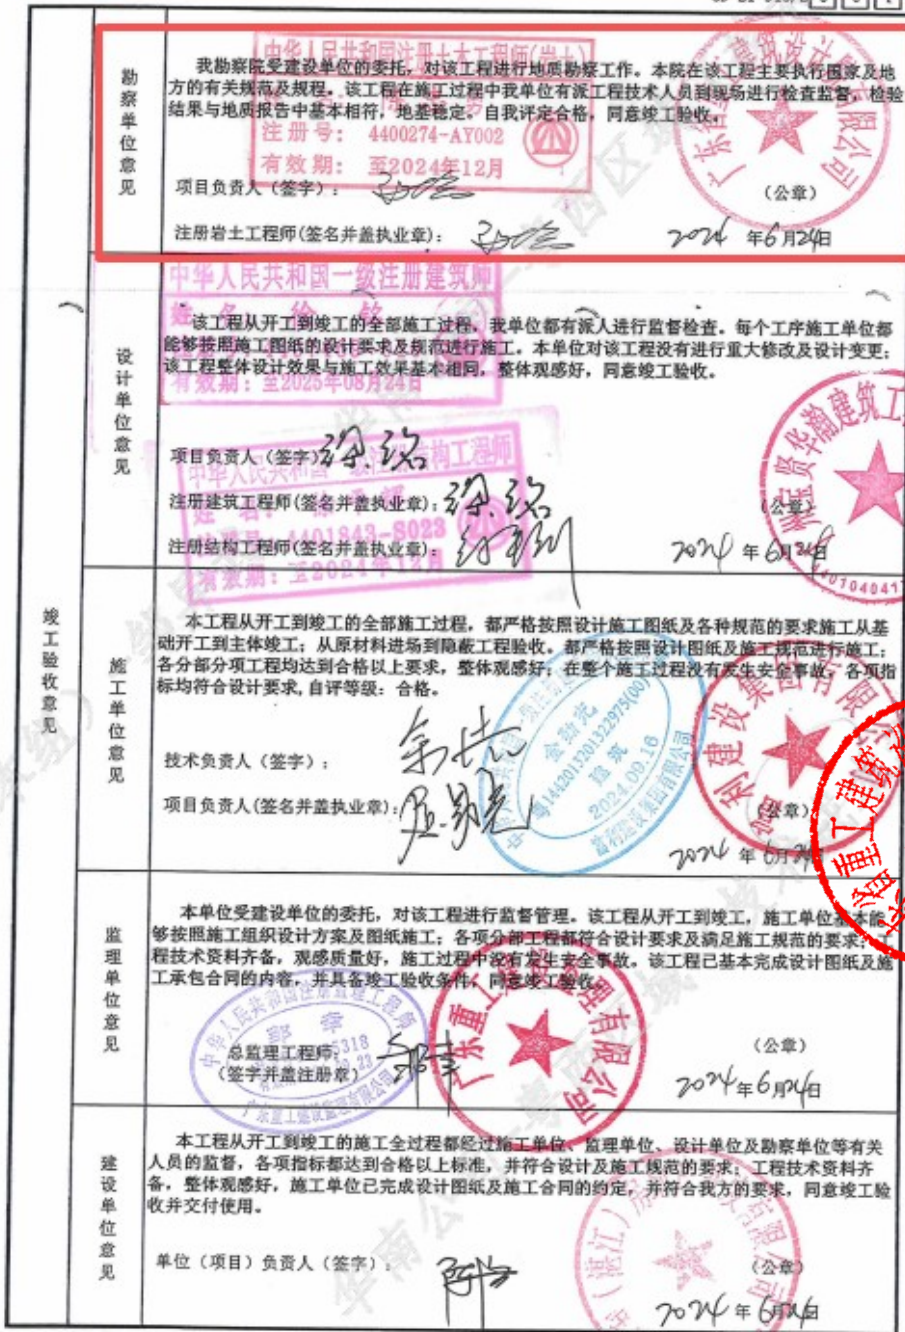 竣工验收意见
勘察单位意见
我勘察院受建设单位的委托，对该工程进行地质勘察工作。本院在该工程主要执行国家及地
方的有关规范及规程。该工程在施工过程中我单位有派工程技术人员到现场进行检查监督，检验
结果与地质报告中基本相符，地基稳定。自我评定合格，同意竣工验收。
中华人民共和国注册土木工程师(岩土)
注册号： 4400274-AY002
有效期： 至2024年12月
项目负责人（签字）：
（公章）
注册岩土工程师(签名并盖执业章)：
2024 年6月24日
设计单位意见
中华人民共和国一级注册建筑师
该工程从开工到竣工的全部施工过程，我单位都有派人进行监督检查。每个工序施工单位都
能够按照施工图纸的设计要求及规范进行施工。本单位对该工程没有进行重大修改及设计变更；
该工程整体设计效果与施工效果基本相同，整体观感好，同意竣工验收。
有效期：至2025年08月24日
项目负责人（签字）
注册建筑工程师(签名并盖执业章)：
（公章）
注册结构工程师(签名并盖执业章)：
2024 年 6月24日
有效期：至2024年12月
施工单位意见
本工程从开工到竣工的全部施工过程，都严格按照设计施工图纸及各种规范的要求施工从基
础开工到主体竣工；从原材料进场到隐蔽工程验收。都严格按照设计图纸及施工规范进行施工；
各分部分项工程均达到合格以上要求，整体观感好；在整个施工过程没有发生安全事故，各项指
标均符合设计要求,自评等级：合格。
技术负责人（签字）：
项目负责人(签名并盖执业章)：
建筑
2024.09.16
（公章）
2024 年 6月24日
监理单位意见
本单位受建设单位的委托，对该工程进行监督管理。该工程从开工到竣工，施工单位基本能
够按照施工组织设计方案及图纸施工；各项分部工程都符合设计要求及满足施工规范的要求；工
程技术资料齐备，观感质量好，施工过程中没有发生安全事故。该工程已基本完成设计图纸及施
工承包合同的内容，并具备竣工验收条件，同意竣工验收。
总监理工程师：
（签字并盖注册章）
（公章）
2024年6月24日
建设单位意见
本工程从开工到竣工的施工全过程都经过施工单位、监理单位、设计单位及勘察单位等有关
人员的监督，各项指标都达到合格以上标准，并符合设计及施工规范的要求；工程技术资料齐
备，整体观感好，施工单位已完成设计图纸及施工合同的约定，并符合我方的要求，同意竣工验
收并交付使用。
单位（项目）负责人（签字）：
（公章）
2024 年 6月24日